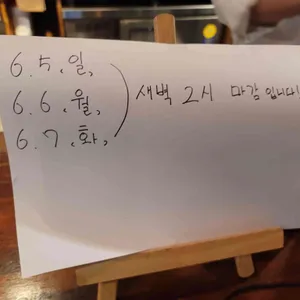 6.5.일,
6.6.월, ) 새벽 2시 마감입니다!
6.7.화,